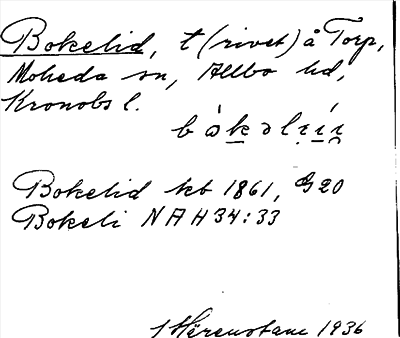 Bokelid, t (rivet) å Torp,
Moheda sn, Allbo hd,
Kronobs l.
Bokelid kb 1861, G20
Bokeli NAH 34:33
1936